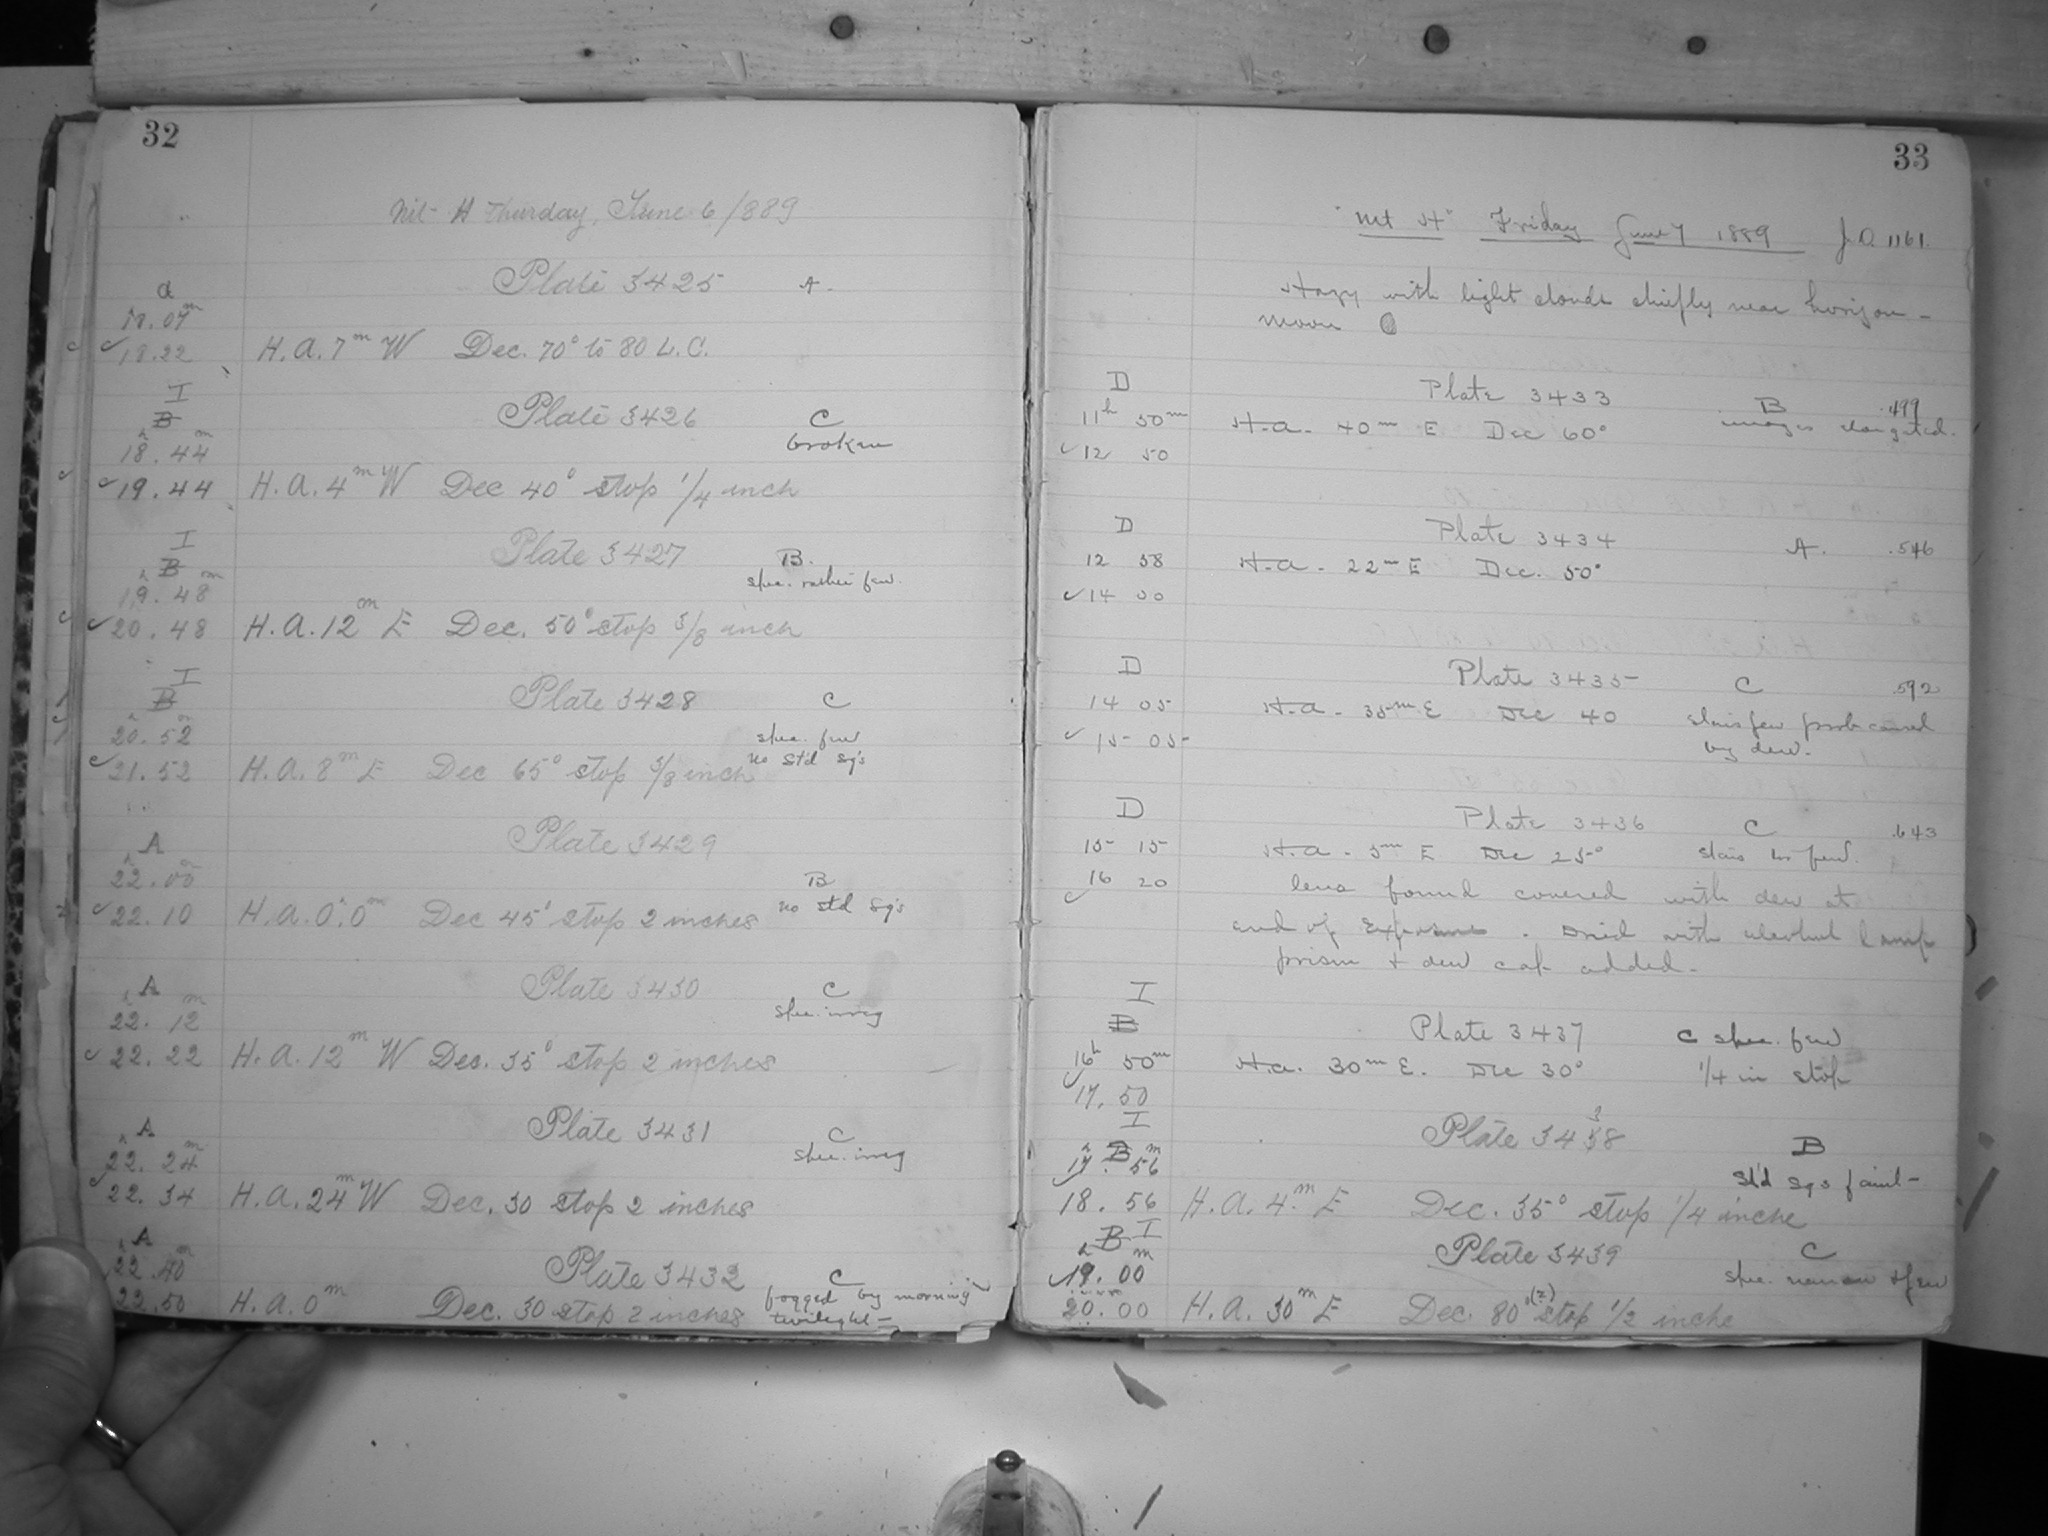 32
Mt H Thurday, June 6/889
Plate 3425 A.
a
18.07m
18.22 H.A. 7m W Dec. 70° to 80 L.C.
I
B Plate 3426 C
broken
h m
18.44
19.44 H.A. 4m W Dec 40° stop 1/4 inch
I
B Plate 3427 B.
spec. rather few.
h m
19.48
20.48 H.A. 12m E Dec. 50° stop 3/8 inch
I
B Plate 3428 C
h m
20.52 spec. few
no St'd Sq's
21.52 H.A. 8m E Dec 65° stop 3/8 inch
A Plate 3429
h m
22.00 B
no std Sq's
22.10 H.A. 0h.0m Dec 45° stop 2 inches
A Plate 3430 C
spec. irreg
h m
22.12
22.22 H.A. 12m W Dec. 35° stop 2 inches
A Plate 3431 C
spec. irreg
h m
22.24
22.34 H.A. 24m W Dec. 30 stop 2 inches
A Plate 3432 C
h m
22.40 fogged by morning
twilight
22.50 H.A. 0m Dec. 30 stop 2 inches
33
"Mt H" Friday June 7 1889 J.D. 1161.
Hazy with light clouds chiefly near horizon -
moon
D Plate 3433 B .499
images elongated.
11h 50m H.a. 40m E Dec 60°
12 50
D Plate 3434 A. .546
12 58 H.a. 22m E Dec. 50°
14 00
D Plate 3435 C .592
14 05 H.a. 35m E Dec 40 stars few prob caused
15 05 by dew.
D Plate 3436 C .643
15 15 H.a. 5m E Dec 25° stars few.
16 20 lens found covered with dew at
end of Exposure. Dried with alcohol lamp
prism + dew cap added.
I
B Plate 3437 C spec. few
16h 50m H.a. 30m E. Dec 30° 1/4 in stop
17.50
I Plate 3438 B
3
B
h m
17.56 St'd Sqs faint
18.56 H.A. 4m E Dec. 35° stop 1/4 inche
B I Plate 3439 C
h m
19.00 spec. narrow + few
20.00 H.A. 30m E Dec. 80°(?) stop 1/2 inche